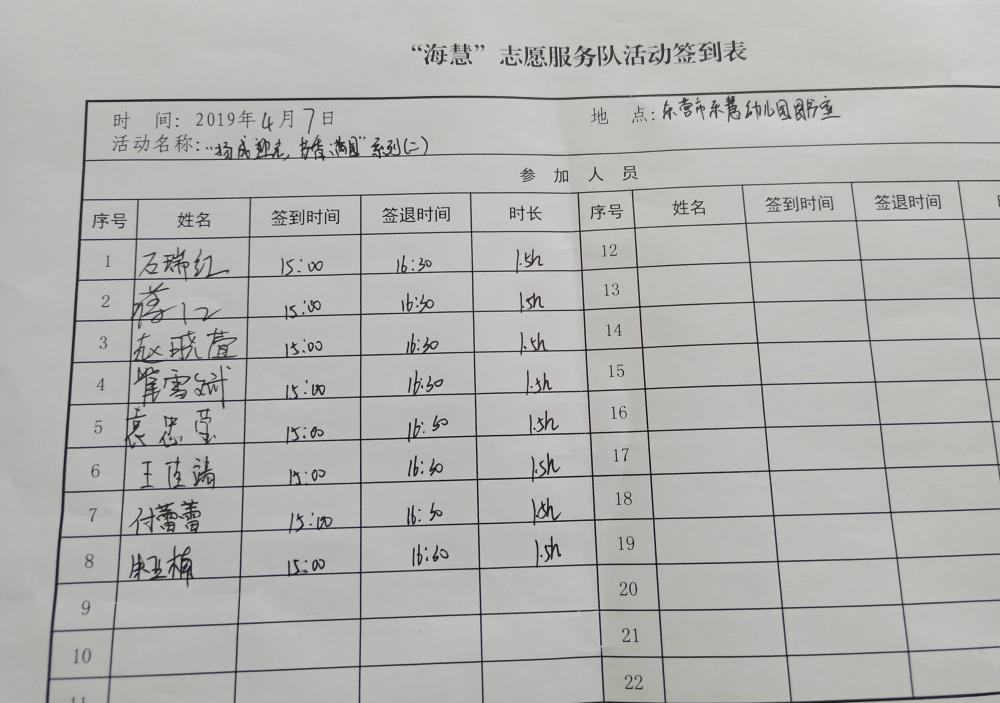 “海慧”志愿服务队活动签到表
时 间: 2019年4月7日 地 点: 东营市东慧幼儿园
活动名称: 书香满园”系列(二)
参 加 人 员
序号 姓名 签到时间 签退时间 时长 序号 姓名 签到时间 签退时间
1 石瑞红 15:00 16:30 1.5h 12
2 15:00 16:30 1.5h 13
3 赵晓萱 15:00 16:30 1.5h 14
4 雪斌 15:00 16:30 1.5h 15
5 袁忠莹 15:00 16:30 1.5h 16
6 王佳端 15:00 16:30 1.5h 17
7 付蕾蕾 15:00 16:30 1.5h 18
8 朱亚楠 15:00 16:30 1.5h 19
9 20
10 21
11 22